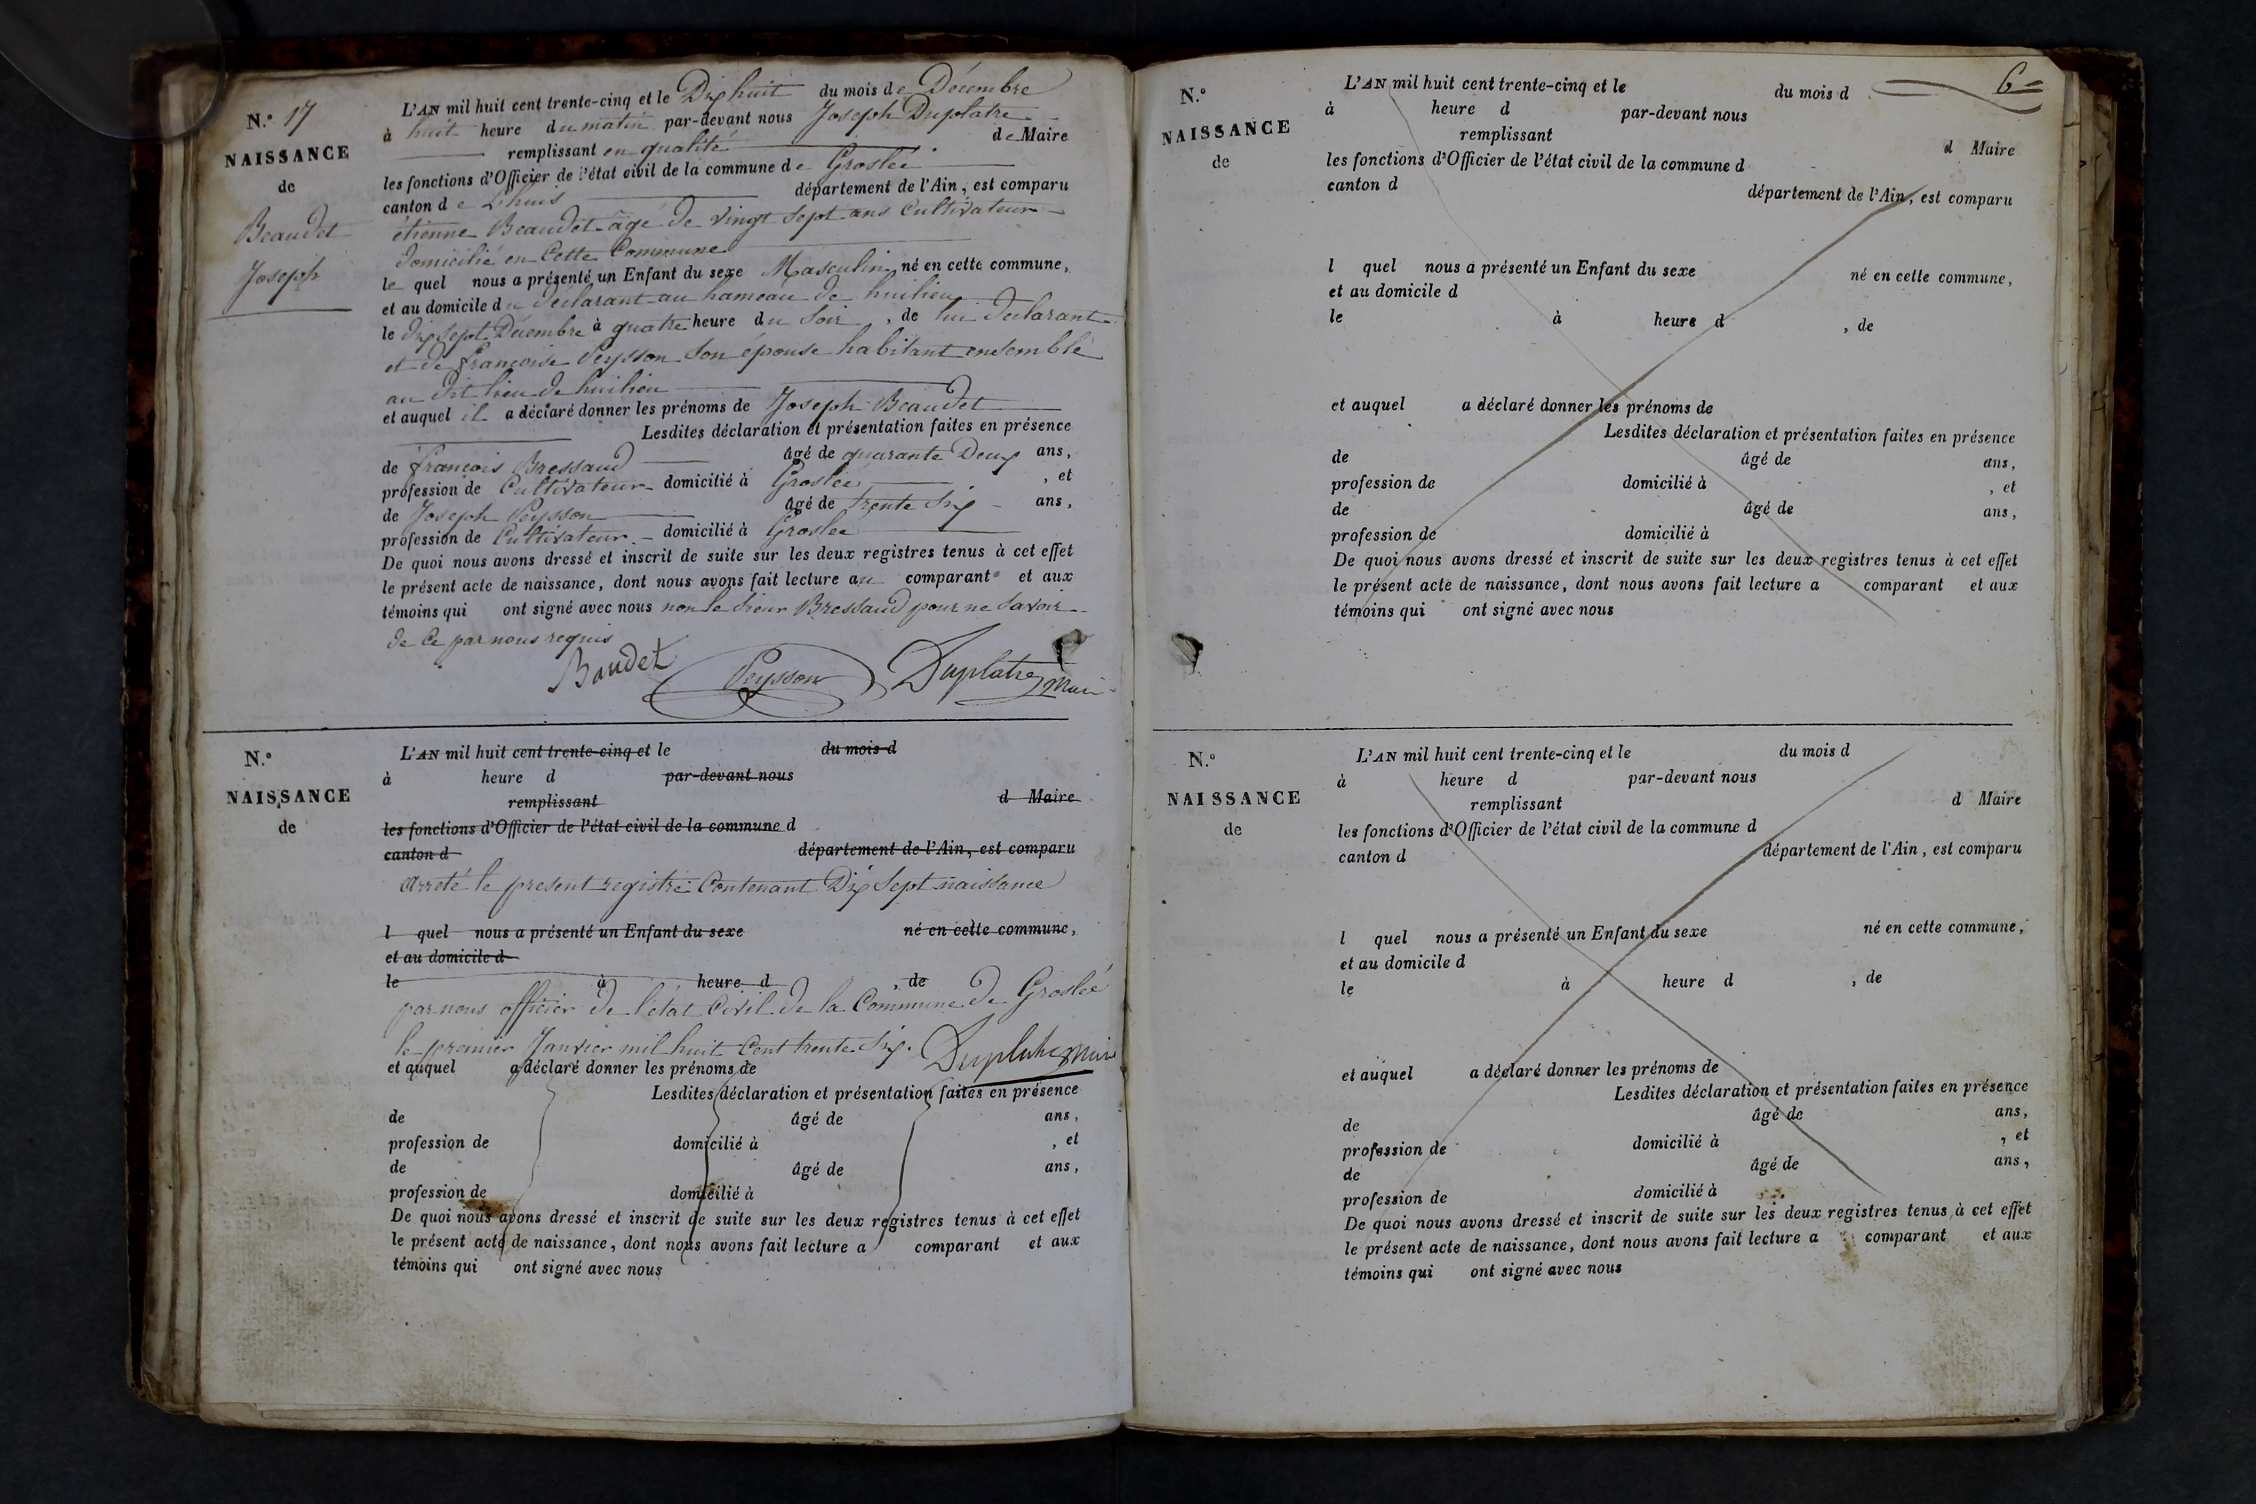 N.° 17
NAISSANCE
de
Beaudet
Joseph
L'AN mil huit cent trente-cinq et le Dix huit du mois de Décembre
à huit heure du matin par-devant nous Joseph Duplatre
remplissant en qualité de Maire
les fonctions d'Officier de l'état civil de la commune de Groslée
canton de Lhuis département de l'Ain, est comparu
étienne Beaudet agé de vingt sept ans Cultivateur
domicilié en Cette Commune
le quel nous a présenté un Enfant du sexe Masculin né en cette commune,
et au domicile du déclarant au hameau de huilieu
le dix sept Décembre à quatre heure du Soir, de lui déclarant
et de françoise Peysson son épouse habitant ensemble
au dit lieu de huilieu
et auquel il a déclaré donner les prénoms de Joseph Beaudet
Lesdites déclaration et présentation faites en présence
de françois Bressaud âgé de quarante Deux ans,
profession de Cultivateur domicilié à Groslée, et
de Joseph Peysson âgé de trente Six ans,
profession de Cultivateur domicilié à Groslée
De quoi nous avons dressé et inscrit de suite sur les deux registres tenus à cet effet
le présent acte de naissance, dont nous avons fait lecture au comparant et aux
témoins qui ont signé avec nous non le Sieur Bressaud pour ne Savoir
de Ce par nous requis
Baudet Peysson Duplatre Maire
N.°
NAISSANCE
de
L'AN mil huit cent trente-cinq et le du mois d
à heure d par-devant nous
remplissant d Maire
les fonctions d'Officier de l'état civil de la commune d
canton d département de l'Ain, est comparu
Arreté le present registre Contenant Dix Sept naissance
l quel nous a présenté un Enfant du sexe né en cette commune,
et au domicile d
le à heure d , de
par nous officier de l'état Civil de la Commune de Groslée
le premier Janvier mil huit Cent trente Six. Duplatre Maire
et auquel a déclaré donner les prénoms de
Lesdites déclaration et présentation faites en présence
de âgé de ans,
profession de domicilié à , et
de âgé de ans,
profession de domicilié à
De quoi nous avons dressé et inscrit de suite sur les deux registres tenus à cet effet
le présent acte de naissance, dont nous avons fait lecture a comparant et aux
témoins qui ont signé avec nous
6
N.°
NAISSANCE
de
L'AN mil huit cent trente-cinq et le du mois d
à heure d par-devant nous
remplissant d Maire
les fonctions d'Officier de l'état civil de la commune d
canton d département de l'Ain, est comparu
l quel nous a présenté un Enfant du sexe né en cette commune,
et au domicile d
le à heure d , de
et auquel a déclaré donner les prénoms de
Lesdites déclaration et présentation faites en présence
de âgé de ans,
profession de domicilié à , et
de âgé de ans,
profession de domicilié à
De quoi nous avons dressé et inscrit de suite sur les deux registres tenus à cet effet
le présent acte de naissance, dont nous avons fait lecture a comparant et aux
témoins qui ont signé avec nous
N.°
NAISSANCE
de
L'AN mil huit cent trente-cinq et le du mois d
à heure d par-devant nous
remplissant d Maire
les fonctions d'Officier de l'état civil de la commune d
canton d département de l'Ain, est comparu
l quel nous a présenté un Enfant du sexe né en cette commune,
et au domicile d
le à heure d , de
et auquel a déclaré donner les prénoms de
Lesdites déclaration et présentation faites en présence
de âgé de ans,
profession de domicilié à , et
de âgé de ans,
profession de domicilié à
De quoi nous avons dressé et inscrit de suite sur les deux registres tenus à cet effet
le présent acte de naissance, dont nous avons fait lecture a comparant et aux
témoins qui ont signé avec nous